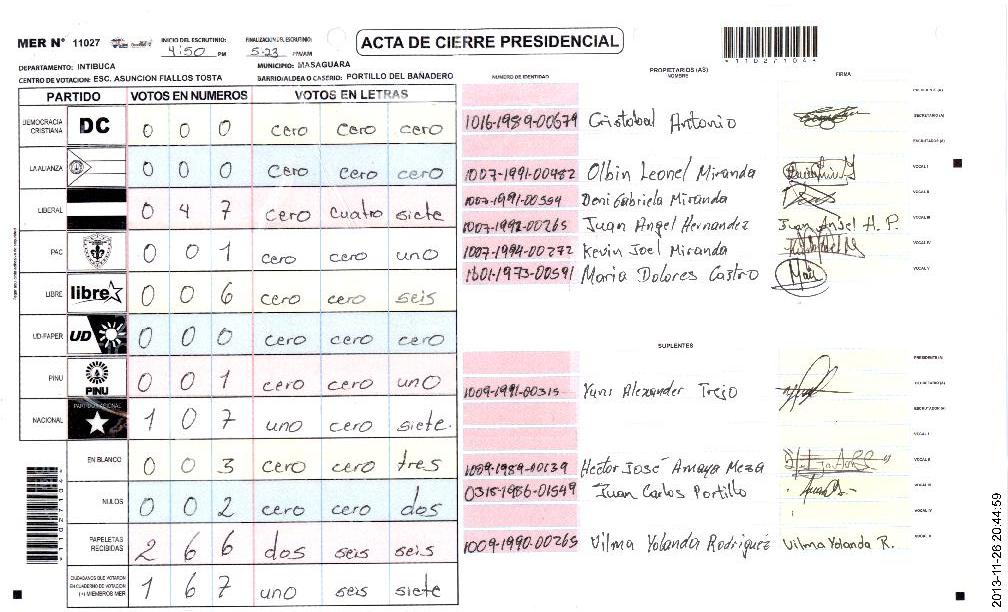 MER N° 11027
INICIO DEL ESCRUTINIO: 4:50 PM
FINALIZACION DEL ESCRUTINIO: 5:23 PM/AM
ACTA DE CIERRE PRESIDENCIAL
DEPARTAMENTO: INTIBUCA MUNICIPIO: MASAGUARA
CENTRO DE VOTACION: ESC. ASUNCION FIALLOS TOSTA BARRIO/ALDEA O CASERIO: PORTILLO DEL BAÑADERO
PARTIDO VOTOS EN NUMEROS VOTOS EN LETRAS
DEMOCRACIA CRISTIANA DC 0 0 0 cero cero cero
LA ALIANZA 0 0 0 cero cero cero
LIBERAL 0 4 7 cero cuatro siete
PAC 0 0 1 cero cero uno
LIBRE libre 0 0 6 cero cero seis
UD-FAPER UD 0 0 0 cero cero cero
PINU PINU 0 0 1 cero cero uno
NACIONAL 1 0 7 uno cero siete.
EN BLANCO 0 0 3 cero cero tres
NULOS 0 0 2 cero cero dos
PAPELETAS RECIBIDAS 2 6 6 dos seis seis
CIUDADANOS QUE VOTARON EN CUADERNO DE VOTACION (+) MIEMBROS MER 1 6 7 uno seis siete
PROPIETARIOS (AS)
NUMERO DE IDENTIDAD NOMBRE FIRMA
PRESIDENTE (A)
1016-1989-00679 Cristobal Antonio SECRETARIO (A)
ESCRUTADOR (A)
1007-1991-00482 Olbin Leonel Miranda VOCAL I
1007-1991-00554 Deni Gabriela Miranda VOCAL II
1007-1992-00265 Juan Angel Hernandez Juan Angel H. P. VOCAL III
1007-1994-00272 Kevin Joel Miranda VOCAL IV
1601-1973-00591 Maria Dolores Castro VOCAL V
SUPLENTES
PRESIDENTE (A)
1009-1991-00315 Yuni Alexander Trejo SECRETARIO (A)
ESCRUTADOR (A)
VOCAL I
1009-1989-00139 Hector José Amaya Meza VOCAL II
0318-1986-01549 Juan Carlos Portillo VOCAL III
VOCAL IV
1009-1990-00265 Vilma Yolanda Rodriguez Vilma Yolanda R. VOCAL V
11027104
11027104
2013-11-26 20:44:59